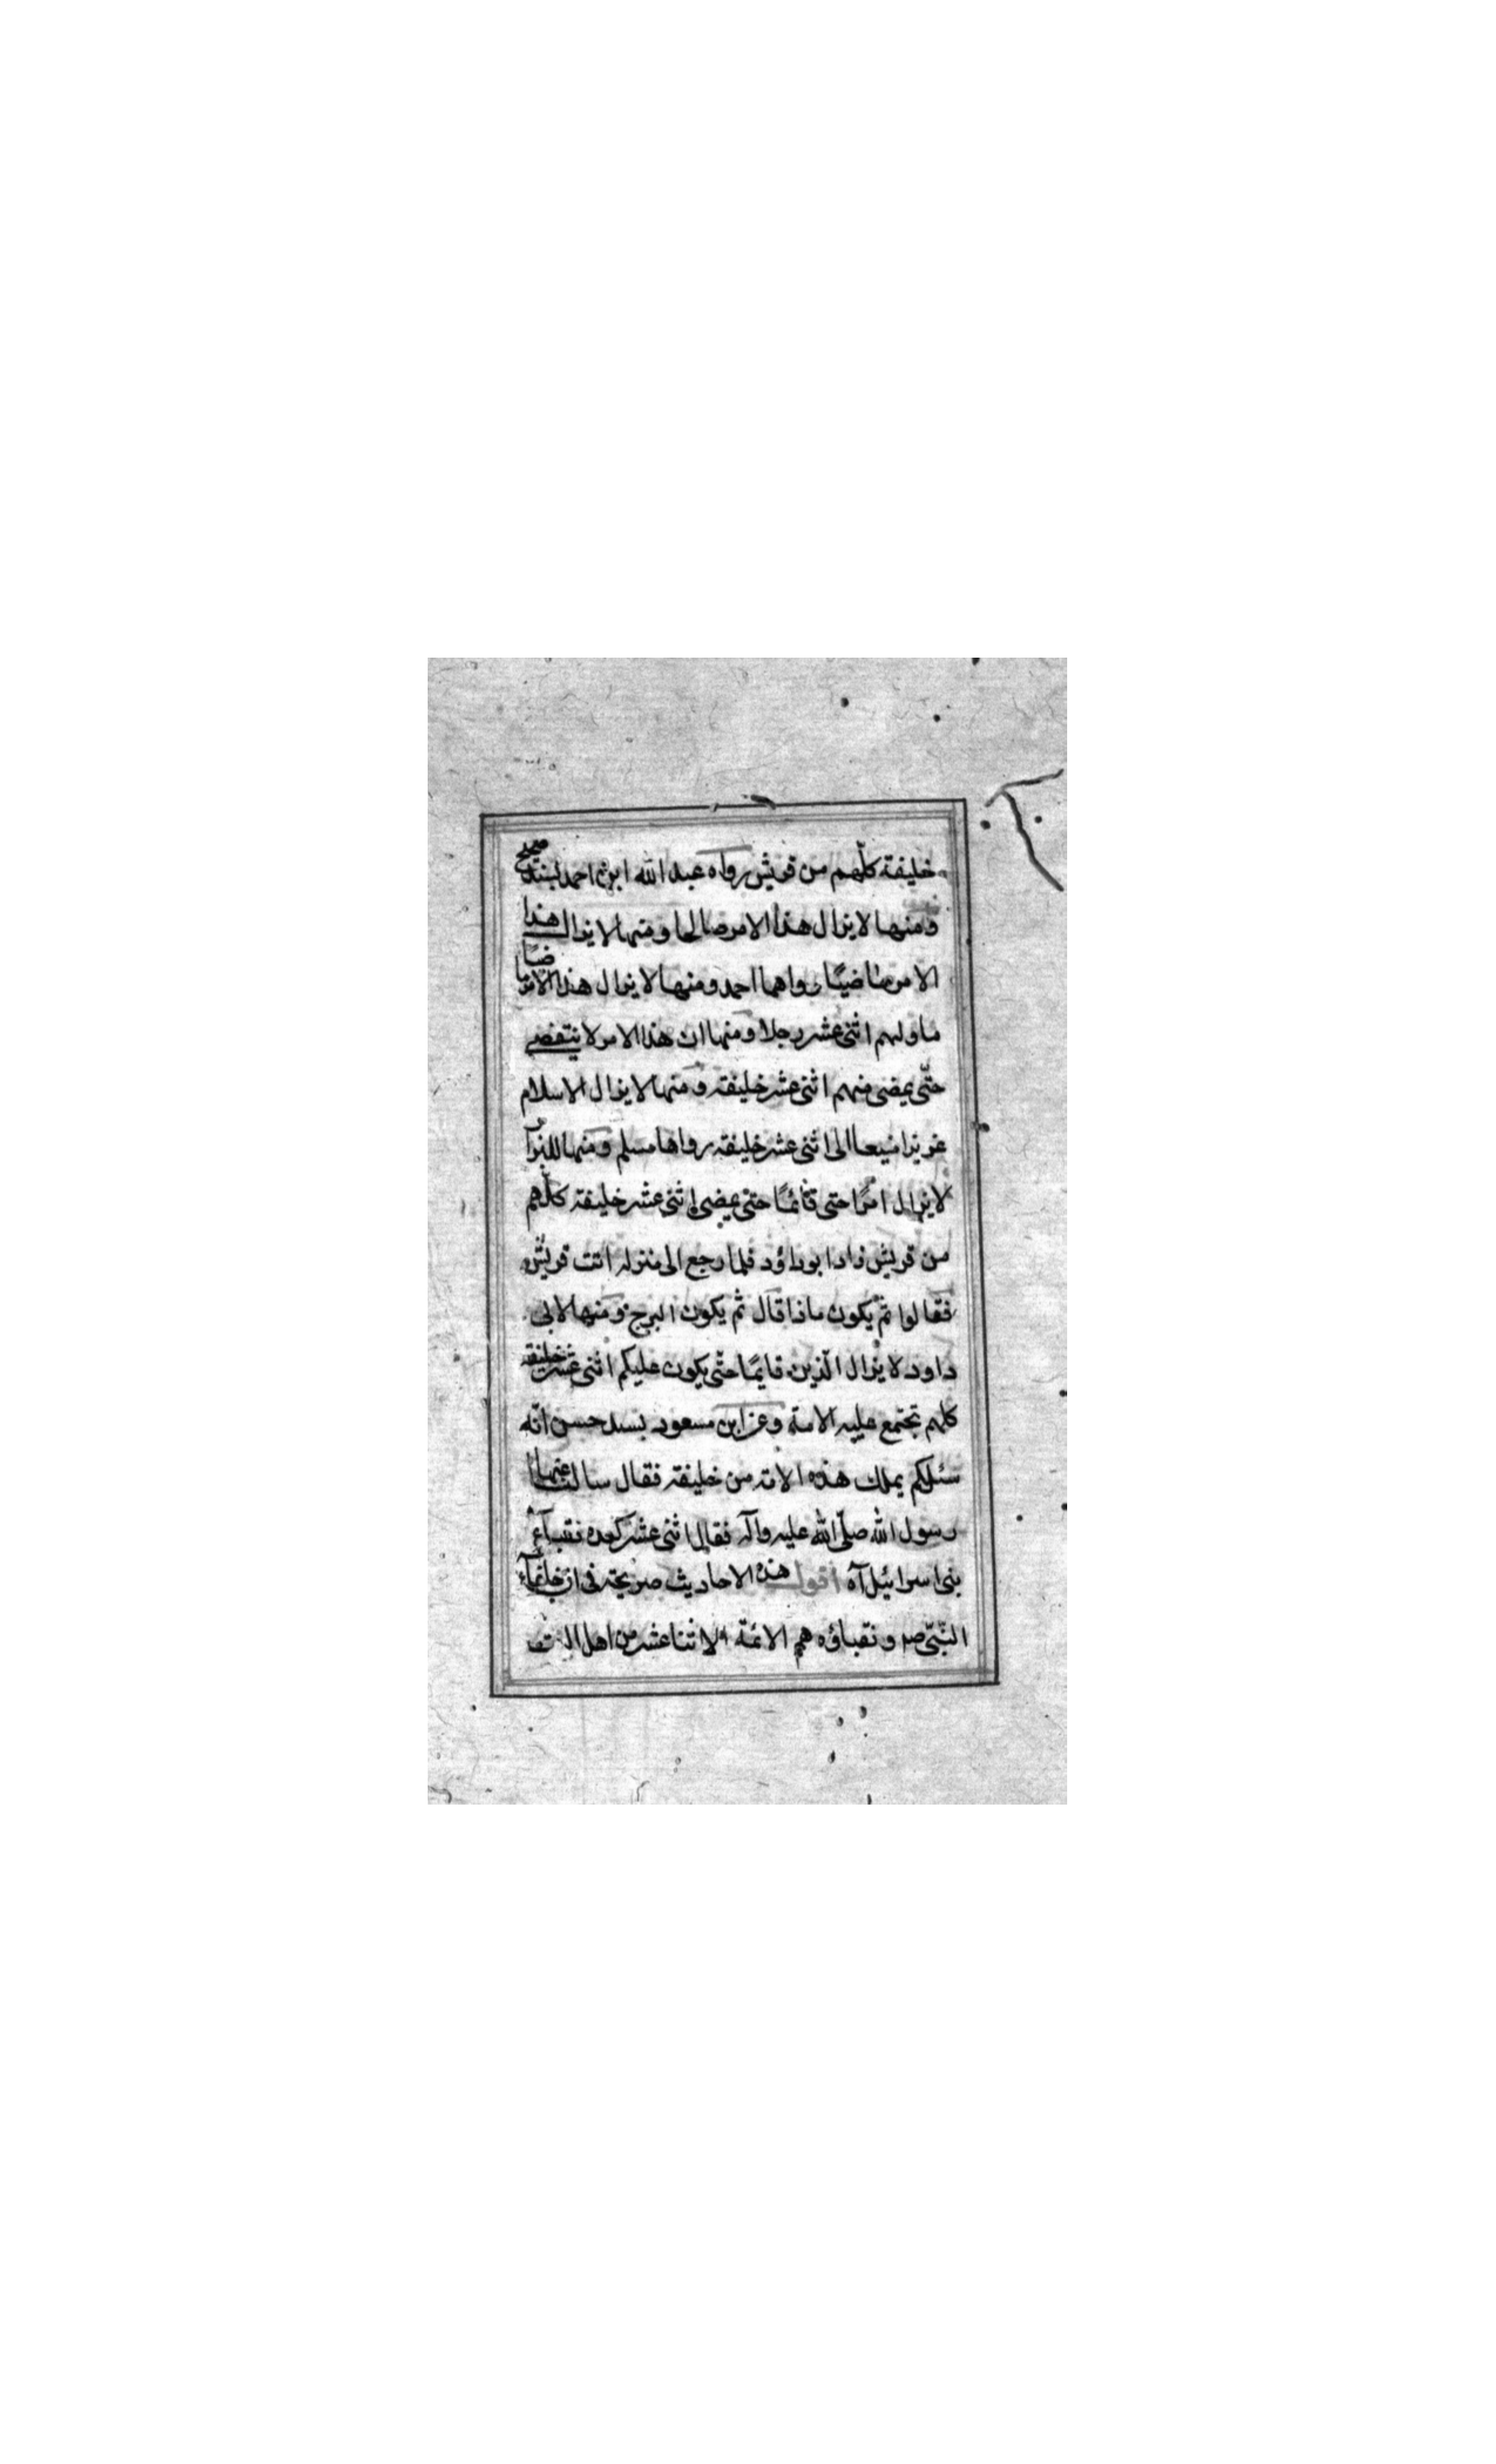 خليفة كلّهم من قريش رواه عبد الله ابن احمد بسند صحيح
ومنها لا يزال هذا الامر صالحا ومنها لا يزال هذا
الامر ماضيًا رواهما احمد ومنها لا يزال هذا الامر ماضيًا
ما ولهم اثنى عشر رجلا ومنها ان هذا الامر لا ينقضے
حتّى يمضى منهم اثنى عشر خليفة ومنها لا يزال الاسلام
عزيزا منيعا الى اثنى عشر خليفة رواها مسلم ومنها للبزّار
لا يزال امر احتى قائمًا حتى يمضى اثنى عشر خليفة كلّهم
من قريش زاد ابو داؤد فلما رجع الى منزله اتت قريش
فقالوا ثم يكون ماذا قال ثم يكون البرج ومنها لابى
داود لا يزال الذين قايمًا حتّى يكون عليكم اثنى عشر خليفة
كلهم تجتمع عليه الامة وعن ابن مسعود بسند حسن انّه
سئل كم يملك هذه الامة من خليفة فقال سالنا عنها
رسول الله صلّى الله عليه وآله فقال اثنى عشر كعده نقبآء
بنى اسرائيل آه اقول هذه الاحاديث صريحة فى ان خلفآء
النّبىّ ص و نقباؤه هم الائمّة الاثنا عشر من اهل